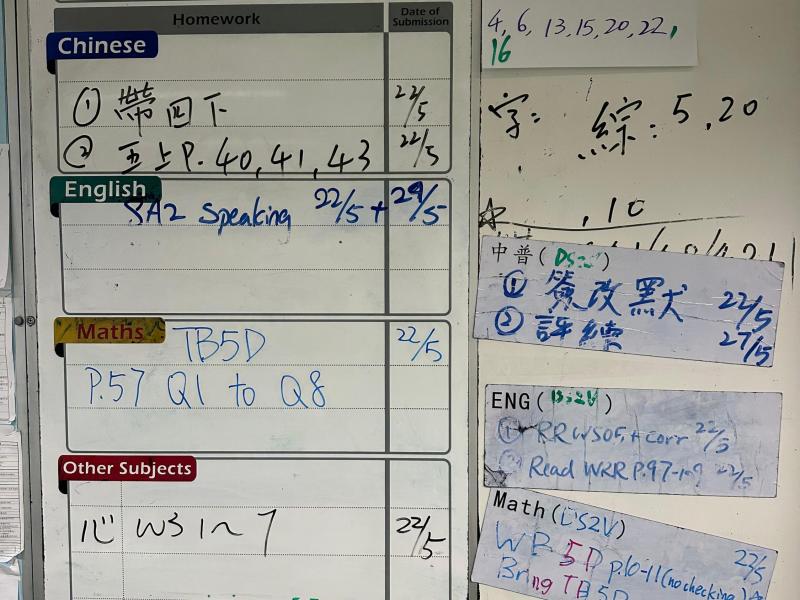 Homework Date of Submission
Chinese
① 帶回下 22/5
② 五上P. 40, 41, 43 22/5
English
SA2 Speaking 22/5 + 29/5
Maths
TB5D 22/5
P.57 Q1 to Q8
Other Subjects
心 WS 1~7 22/5
4, 6, 13, 15, 20, 22,
16
字: 綜: 5, 20
, 10
中普( )
① 簽改默 22/5
② 評 27/5
ENG( )
① RRWS05, + corr 22/5
② Read WRR P.97- 22/5
Math( S2V)
WB 5D p.10-11(no checking) 22/5
Bring TB 5D